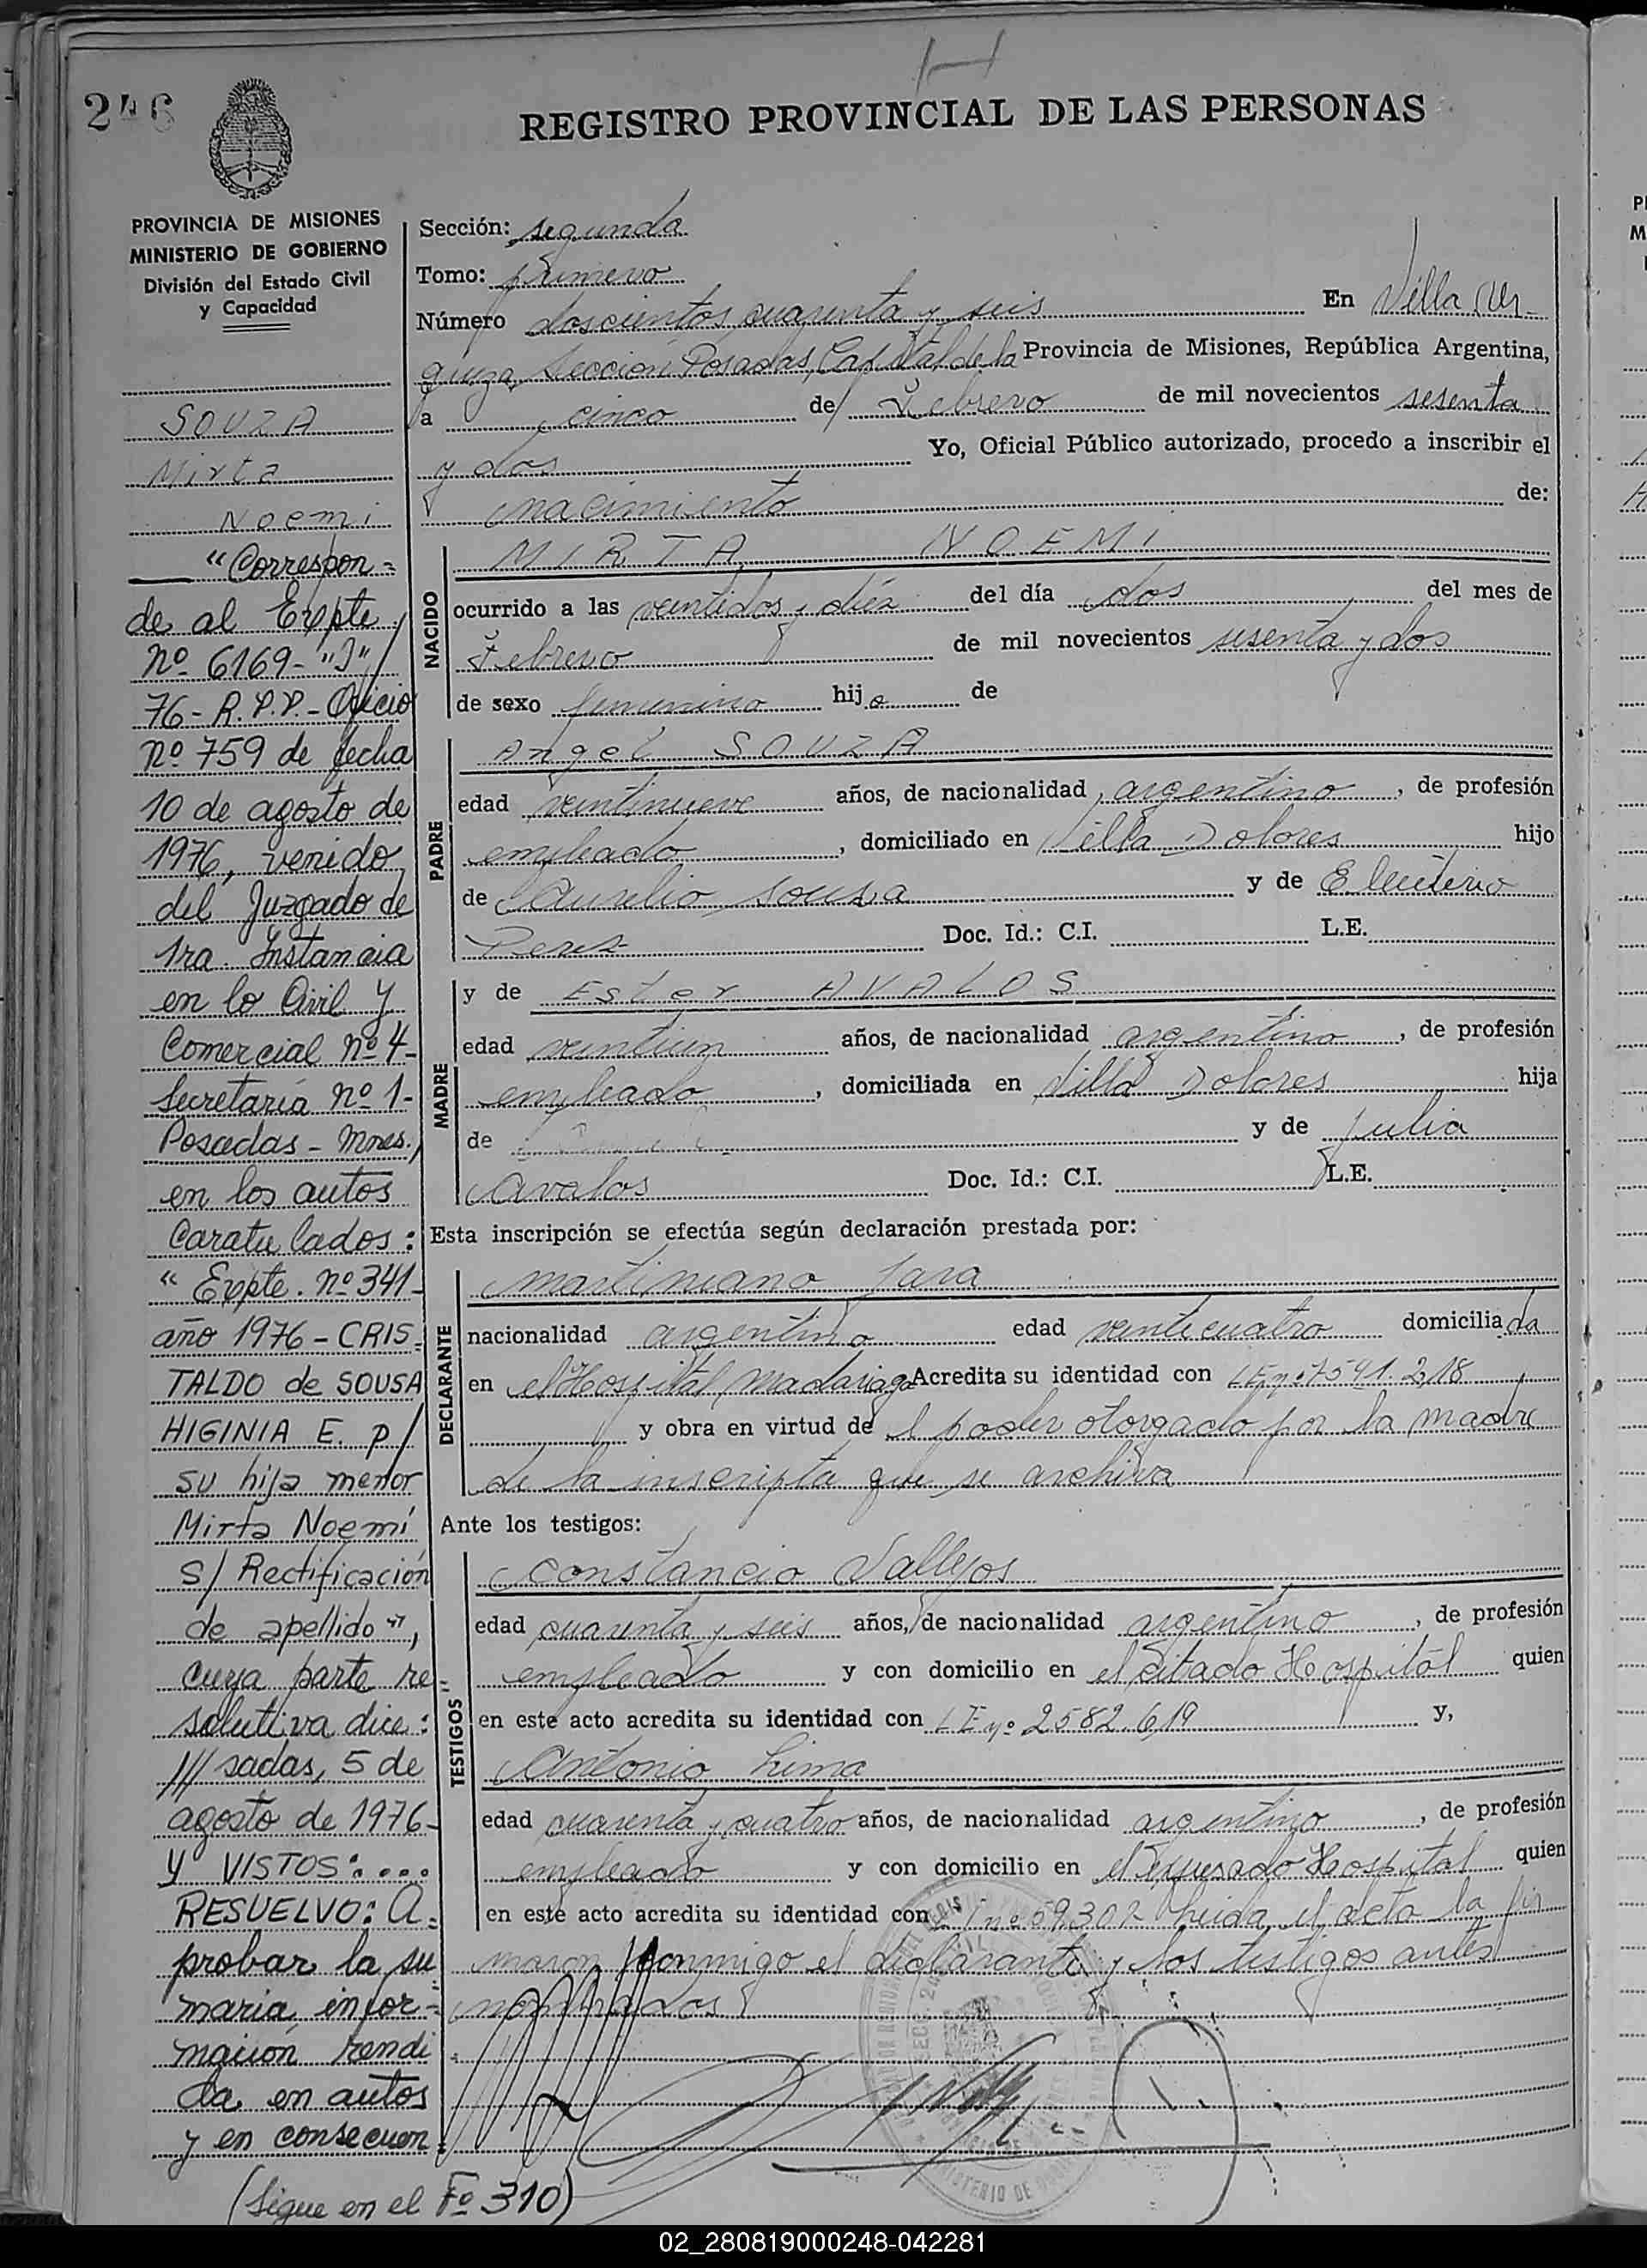 246
REGISTRO PROVINCIAL DE LAS PERSONAS
PROVINCIA DE MISIONES
MINISTERIO DE GOBIERNO
División del Estado Civil
y Capacidad
SOUZA
Mirta
Noemi
"Correspon=
de al Expte
nº 6169-"J"/
76- R.P.P.- Oficio
nº 759 de fecha
10 de agosto de
1976, venido
del Juzgado de
1ra. Instancia
en lo Civil y
Comercial nº 4-
Secretaría nº 1-
Posadas - Mnes./
en los autos
Caratulados:
"Expte. nº 341-
año 1976 - CRIS=
TALDO de SOUSA
HIGINIA E. p/
su hija menor
Mirta Noemí
S/ Rectificación
de apellido",
cuya parte re=
solutiva dice:
/// sadas, 5 de
agosto de 1976-
Y VISTOS:....
RESUELVO: A=
probar la su
maria infor=
mación rendi
da en autos
y en consecuen=
(Sigue en el Fº 310)
Sección: segunda
Tomo: primero
Número doscientos cuarenta y seis En Villa Ur-
quiza, Sección Posadas, Capital de la Provincia de Misiones, República Argentina,
a cinco de Febrero de mil novecientos sesenta
y dos Yo, Oficial Público autorizado, procedo a inscribir el
nacimiento de:
NACIDO
MIRTA NOEMI
ocurrido a las veintidos y diéz del día dos del mes de
Febrero de mil novecientos sesenta y dos
de sexo femenino hija de
PADRE
Angel SOUZA
edad veintinueve años, de nacionalidad argentino, de profesión
empleado, domiciliado en Villa Dolores hijo
de Aurelio Souza y de Eleuteria
Perez Doc. Id.: C.I. L.E.
MADRE
y de Ester AVALOS
edad veintiun años, de nacionalidad argentina, de profesión
empleado, domiciliada en Villa Dolores hija
de y de Julia
Avalos Doc. Id.: C.I. L.E.
Esta inscripción se efectúa según declaración prestada por:
DECLARANTE
Martiniano Jara
nacionalidad argentino edad veinticuatro domiciliada
en el Hospital Madariaga Acredita su identidad con LE nº 7541.218
y obra en virtud del poder otorgado por la madre
de la inscripta que se archiva
Ante los testigos:
TESTIGOS
Constancio Vallejos
edad cuarenta y seis años, de nacionalidad argentino, de profesión
empleado y con domicilio en el citado Hospital quien
en este acto acredita su identidad con LE nº 2582.619 y,
Antonio Lima
edad cuarenta y cuatro años, de nacionalidad argentino, de profesión
empleado y con domicilio en el expresado Hospital quien
en este acto acredita su identidad con nº 59302 Leida el acta la fir
maron conmigo el declarante y los testigos antes
nombrados
02_280819000248-042281